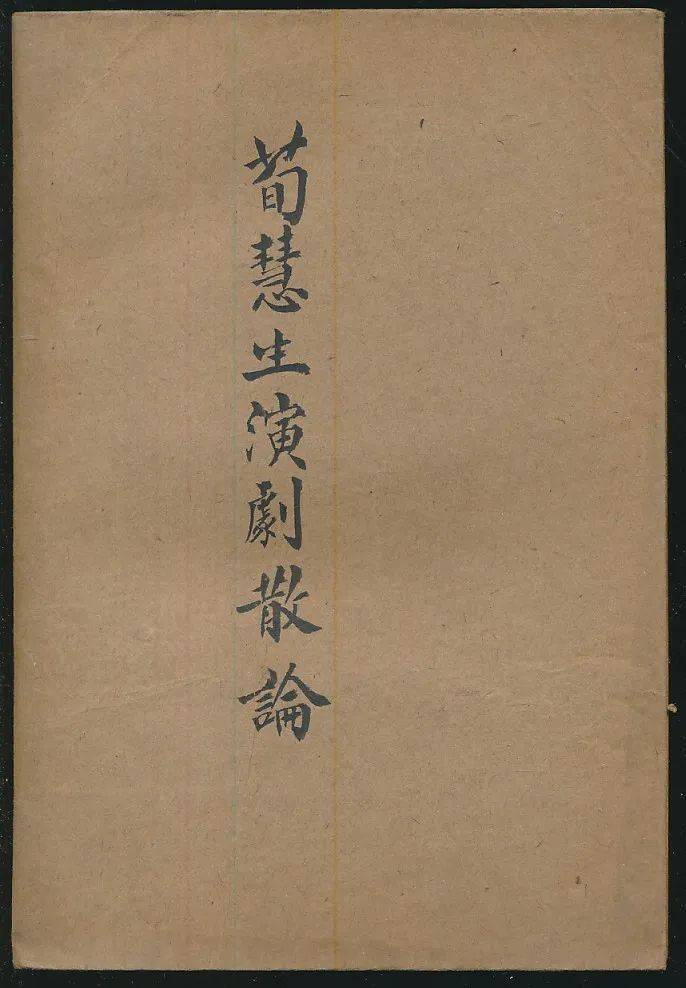 荀慧生演劇散論